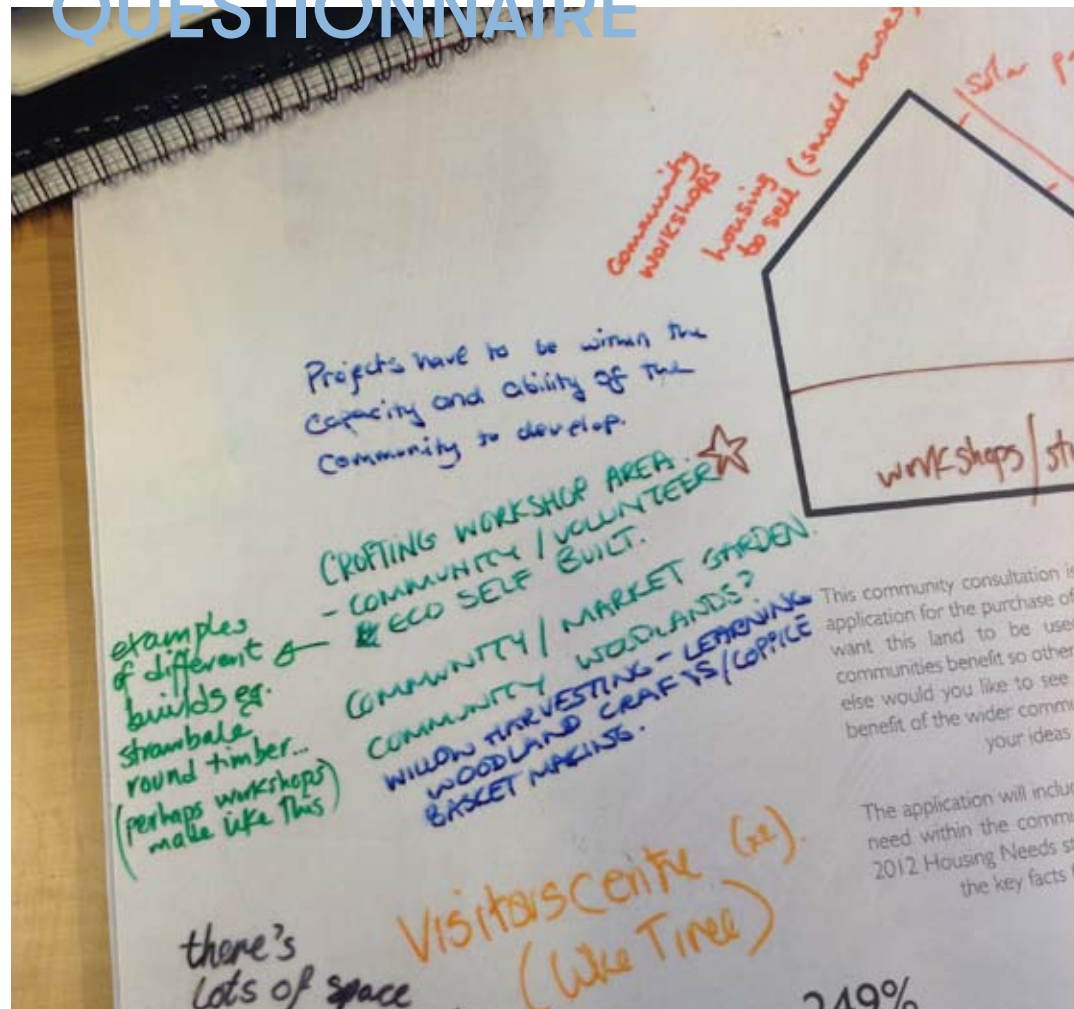 QUESTIONNAIRE
Community
Workshops
housing
to sell (small houses)
Solar
Projects have to be within the
capacity and ability of the
community to develop.
CROFTING WORKSHOP AREA.
- COMMUNITY / VOLUNTEER
ECO SELF BUILT.
COMMUNITY / MARKET GARDEN.
COMMUNITY WOODLANDS?
WILLOW HARVESTING - LEARNING
WOODLAND CRAFTS/COPPICE
BASKET MAKING.
examples
of different
builds eg.
strawbale
round timber...
(perhaps workshops
made like this)
workshops/
This community consultation is
application for the purchase of
want this land to be
communities benefit so other
else would you like to see
benefit of the wider
your ideas
The application will
need within the
2012 Housing Needs
the key facts
Visitors Centre
(like Tiree)
there's
lots of space
249%